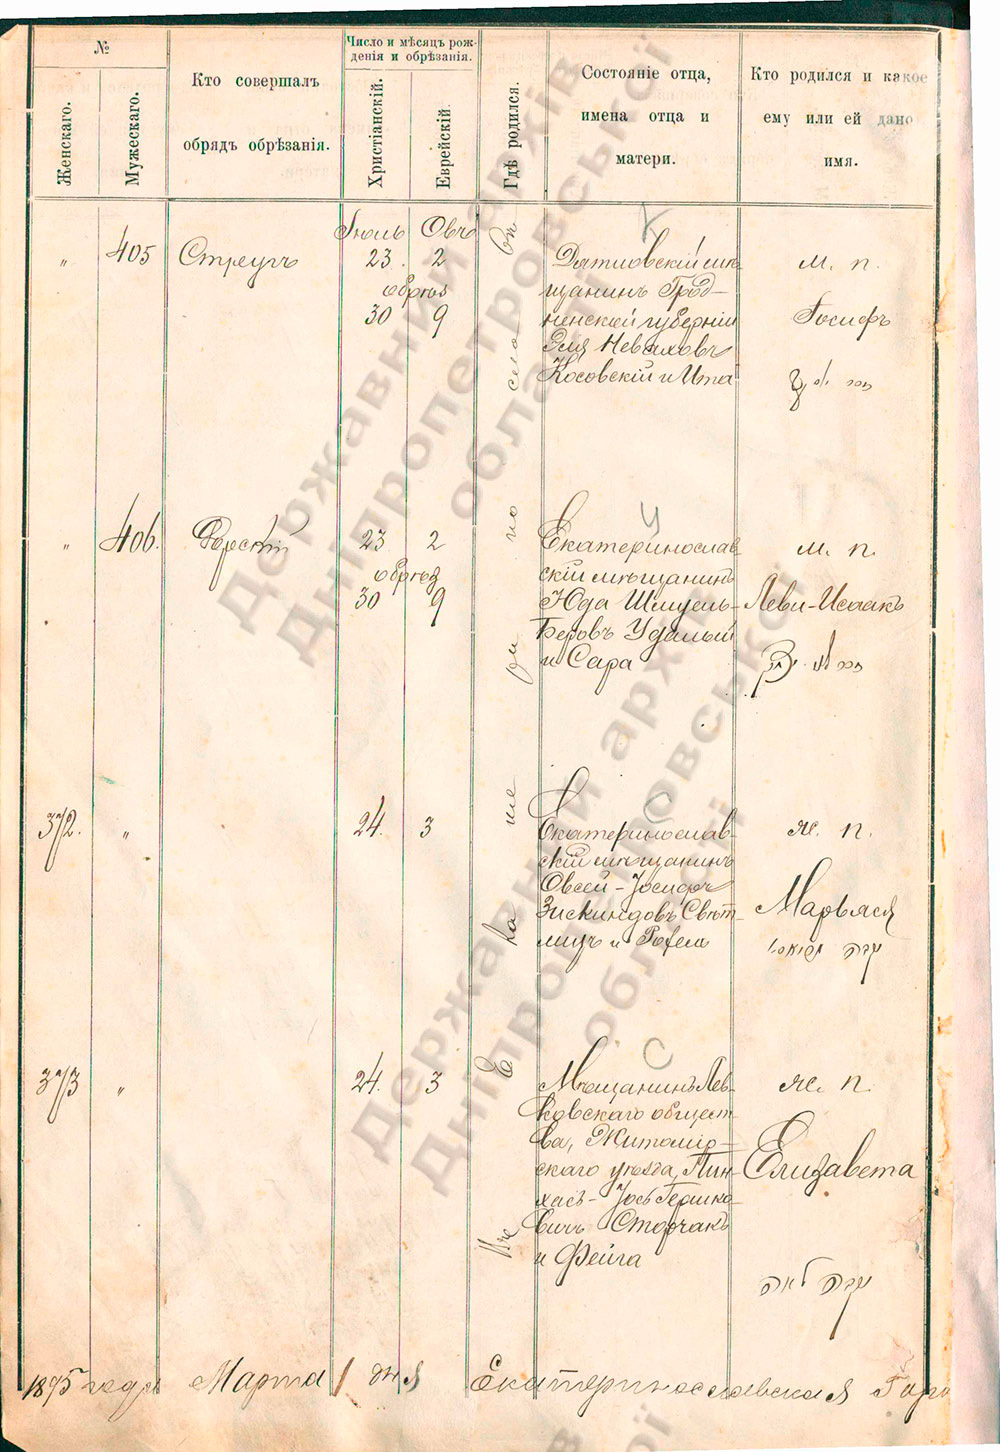 №
Женскаго.
Мужескаго.
Кто совершалъ
обрядъ обрѣзанія.
Число и мѣсяцъ рож-
денія и обрѣзанія.
Христіанскій.
Еврейскій.
Гдѣ родился.
Состояніе отца,
имена отца и
матери.
Кто родился и какое
ему или ей дано
имя.
"
405
Стругъ
Іюль Овъ
23. 2
обрѣз
30 9
Дятловскій мѣ-
щанинъ Грод-
ненской губерніи
Эля Неваховъ
Косовскій и Ита
м. п.
Іосифъ
"
406.
23 2
обрѣз
30 9
Екатеринослав
скій мѣщанинъ
Юда Шмуель-
Беровъ Удалый
и Сара
м. п.
Леви-Исаакъ
372.
"
24. 3
Екатеринослав-
скій мѣщанинъ
Овсей-Іосифъ
Зискиндовъ Свѣт-
лицъ и Рохель
ж. п.
Марьяся
373
"
24. 3
Мѣщанинъ Лев-
ковскаго общест
ва, Житомір-
скаго уѣзда, Пин-
хасъ-Іось Гершко-
вичъ Сторчакъ
и Фейга
ж. п.
Елизавета
1895 года Марта 1 дня Екатеринославская Горо
Державний архів
Дніпропетровської
області
Державний архів
Дніпропетровської
області